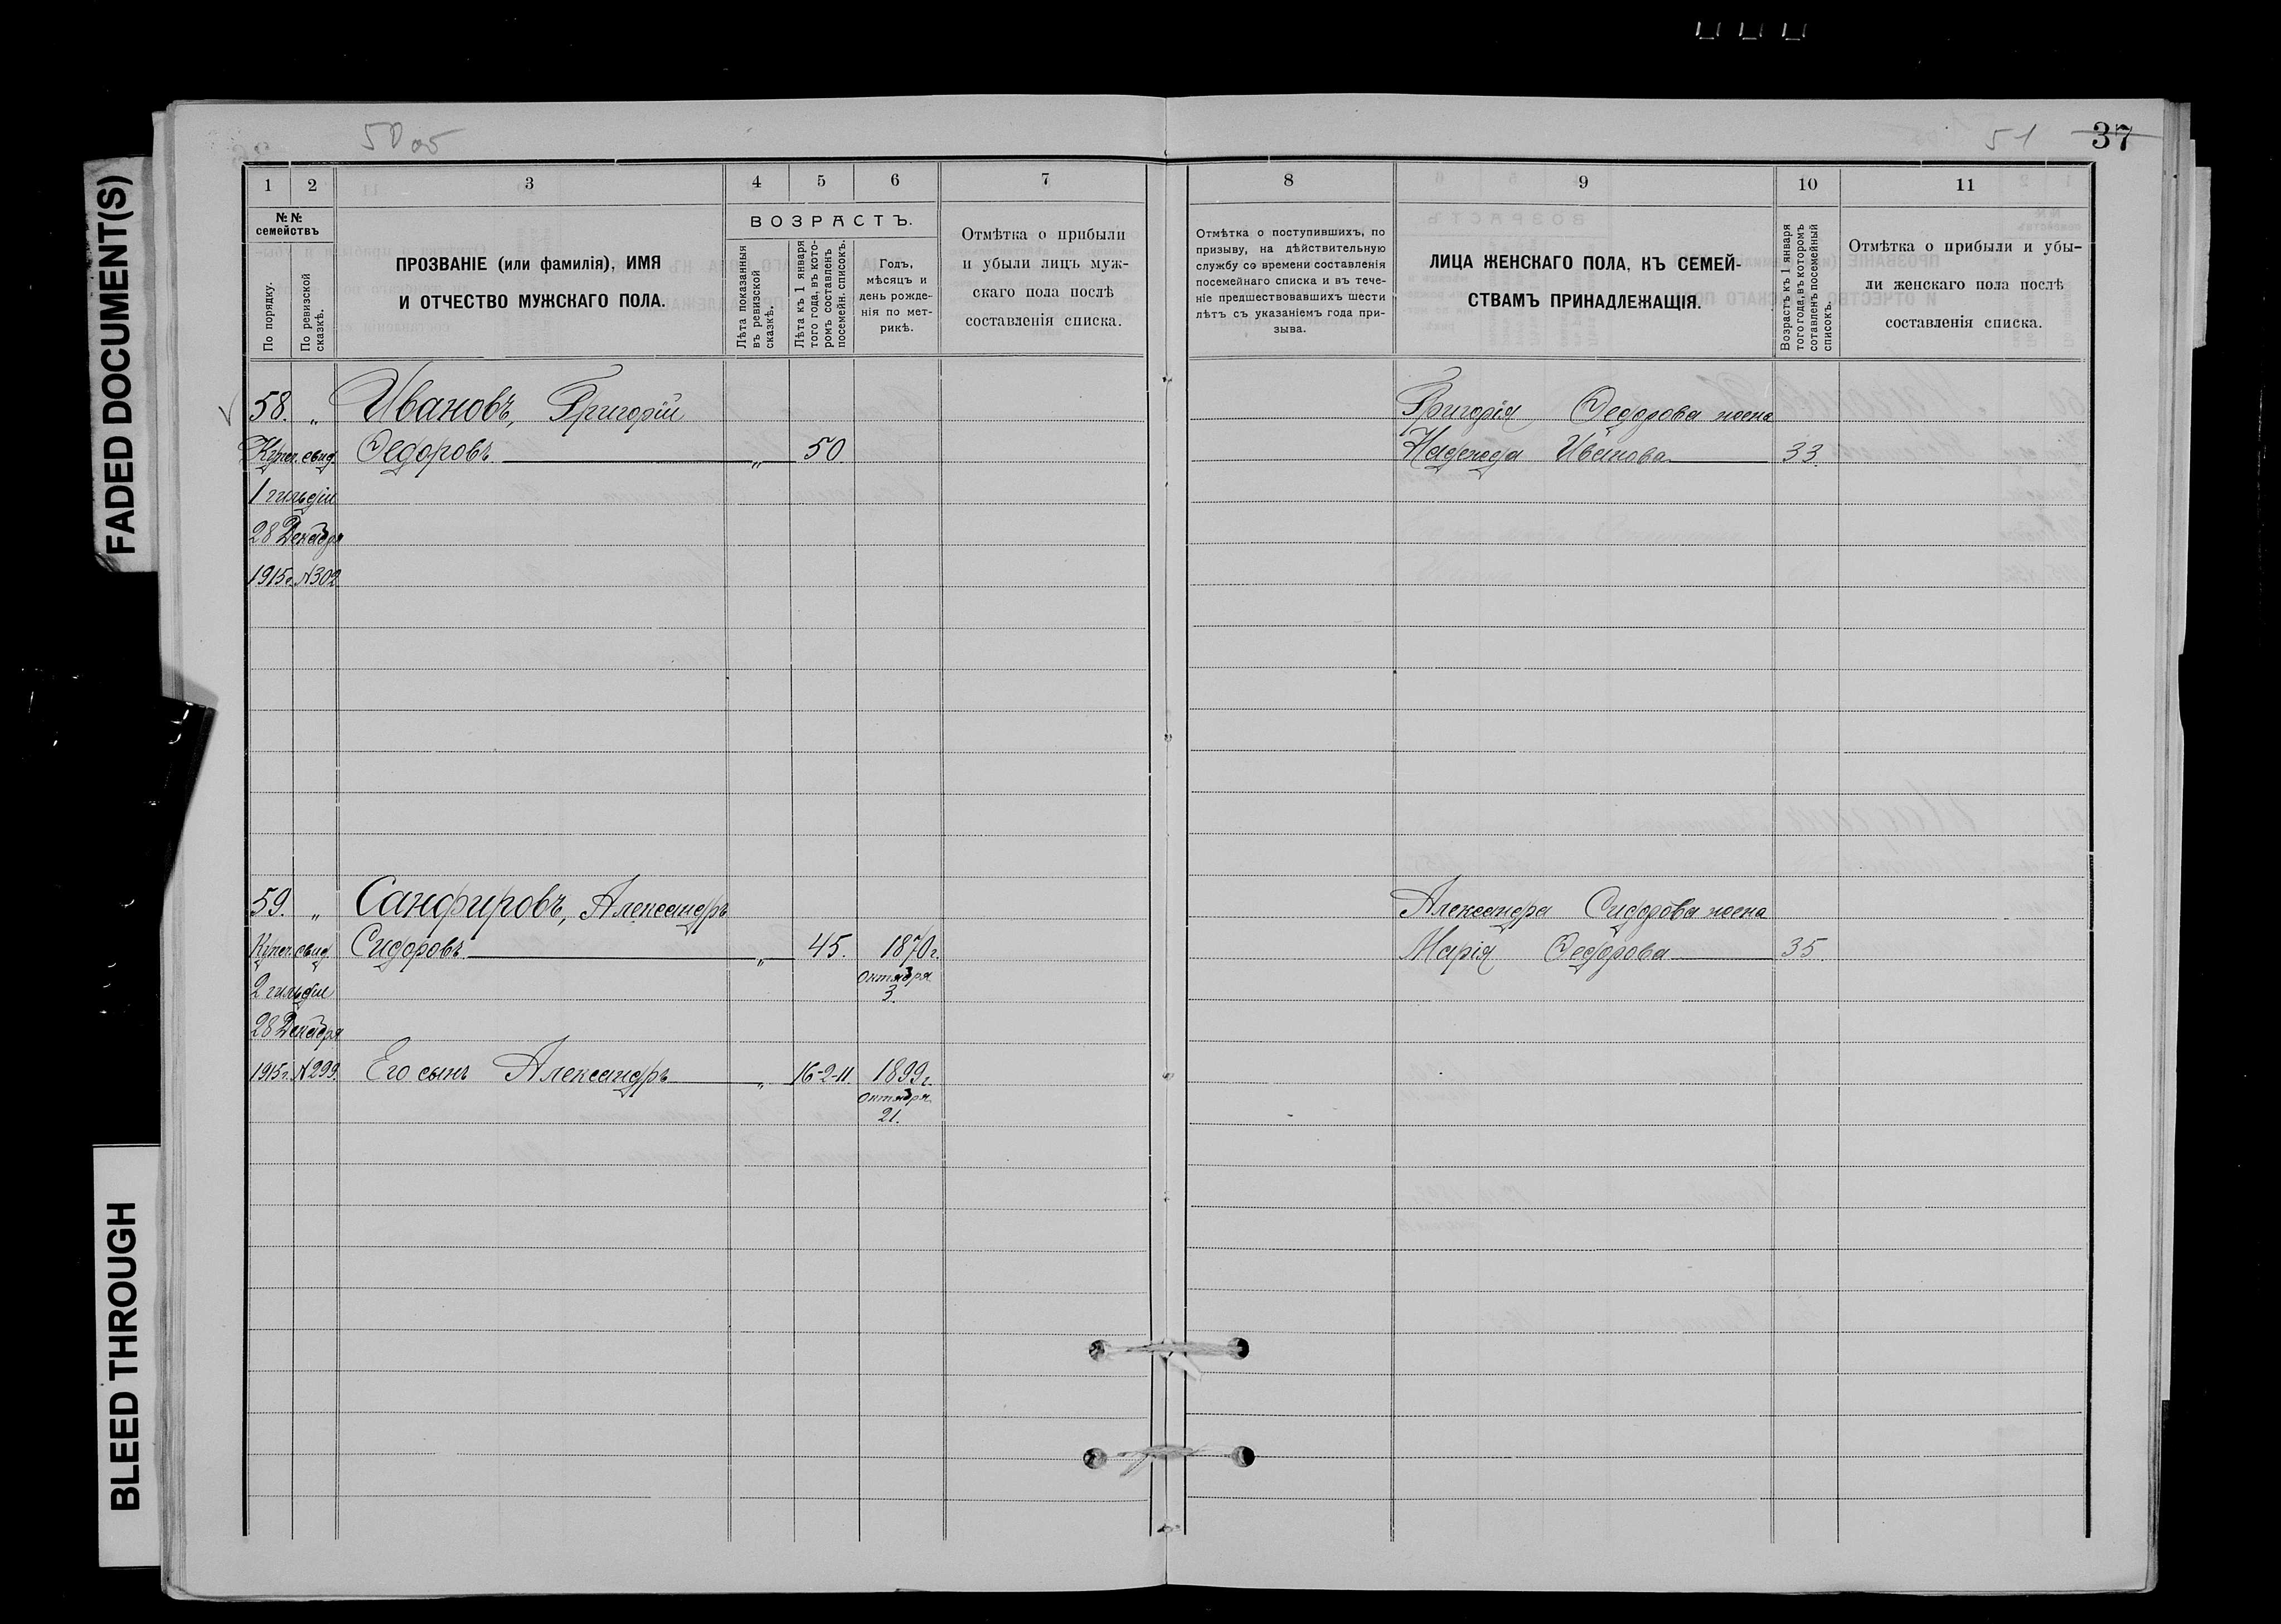 FADED DOCUMENT(S)
BLEED THROUGH
50 об
51
37
1
2
3
4
5
6
7
8
9
10
11
№ №
семействъ
По порядку.
По ревизской
сказкѣ.
ПРОЗВАНІЕ (или фамилія), ИМЯ
И ОТЧЕСТВО МУЖСКАГО ПОЛА.
ВОЗРАСТЪ.
Лѣта показанныя
въ ревизской
сказкѣ.
Лѣта къ 1 января
того года, въ кото-
ромъ составленъ
посемейн. списокъ.
Годъ,
мѣсяцъ и
день рожде-
нія по мет-
рикѣ.
Отмѣтка о прибыли
и убыли лицъ муж-
скаго пола послѣ
составленія списка.
Отмѣтка о поступившихъ, по
призыву, на дѣйствительную
службу со времени составленія
посемейнаго списка и въ тече-
ніе предшествовавшихъ шести
лѣтъ съ указаніемъ года при-
зыва.
ЛИЦА ЖЕНСКАГО ПОЛА, КЪ СЕМЕЙ-
СТВАМЪ ПРИНАДЛЕЖАЩІЯ.
Возрастъ къ 1 января
того года, въ которомъ
сотавленъ посемейный
списокъ.
Отмѣтка о прибыли и убы-
ли женскаго пола послѣ
составленія списка.
58. „ Ивановъ, Григорій
Купеч. свид. Ѳедоровъ „ 50
1 гильдіи
28 Декабря
1915г. №302.
Григорія Ѳедорова жена
Надежда Иванова 33.
59. „ Санфировъ, Александръ
Купеч. свид. Сидоровъ „ 45. 1870г.
Октября
3.
2 гильдіи
28 Декабря
1915г. №299. Его сынъ Александръ „ 16-2-11. 1899г.
Октября
21.
Александра Сидорова жена
Марія Ѳедорова 35.